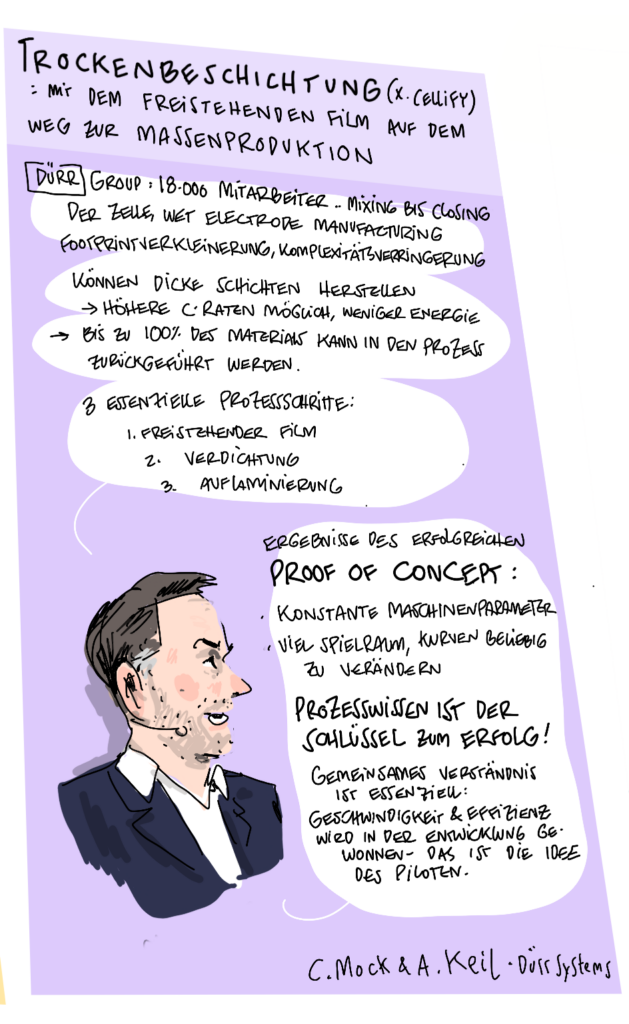 TROCKENBESCHICHTUNG (X.CELLIFY)
: MIT DEM FREISTEHENDEN FILM AUF DEM
WEG ZUR MASSENPRODUKTION
DÜRR GROUP: 18.000 MITARBEITER .. MIXING BIS CLOSING
DER ZELLE, WET ELECTRODE MANUFACTURING
FOOTPRINTVERKLEINERUNG, KOMPLEXITÄTSVERRINGERUNG
KÖNNEN DICKE SCHICHTEN HERSTELLEN
→ HÖHERE C-RATEN MÖGLICH, WENIGER ENERGIE
→ BIS ZU 100% DES MATERIALS KANN IN DEN PROZESS
ZURÜCKGEFÜHRT WERDEN.
3 ESSENZIELLE PROZESSSCHRITTE:
1. FREISTEHENDER FILM
2. VERDICHTUNG
3. AUFLAMINIERUNG
ERGEBNISSE DES ERFOLGREICHEN
PROOF OF CONCEPT:
· KONSTANTE MASCHINENPARAMETER
· VIEL SPIELRAUM, KURVEN BELIEBIG
ZU VERÄNDERN
PROZESSWISSEN IST DER
SCHLÜSSEL ZUM ERFOLG!
GEMEINSAMES VERSTÄNDNIS
IST ESSENZIELL:
GESCHWINDIGKEIT & EFFIZIENZ
WIRD IN DER ENTWICKLUNG GE-
WONNEN- DAS IST DIE IDEE
DES PILOTEN.
C. Mock & A. Keil · Dürr Systems